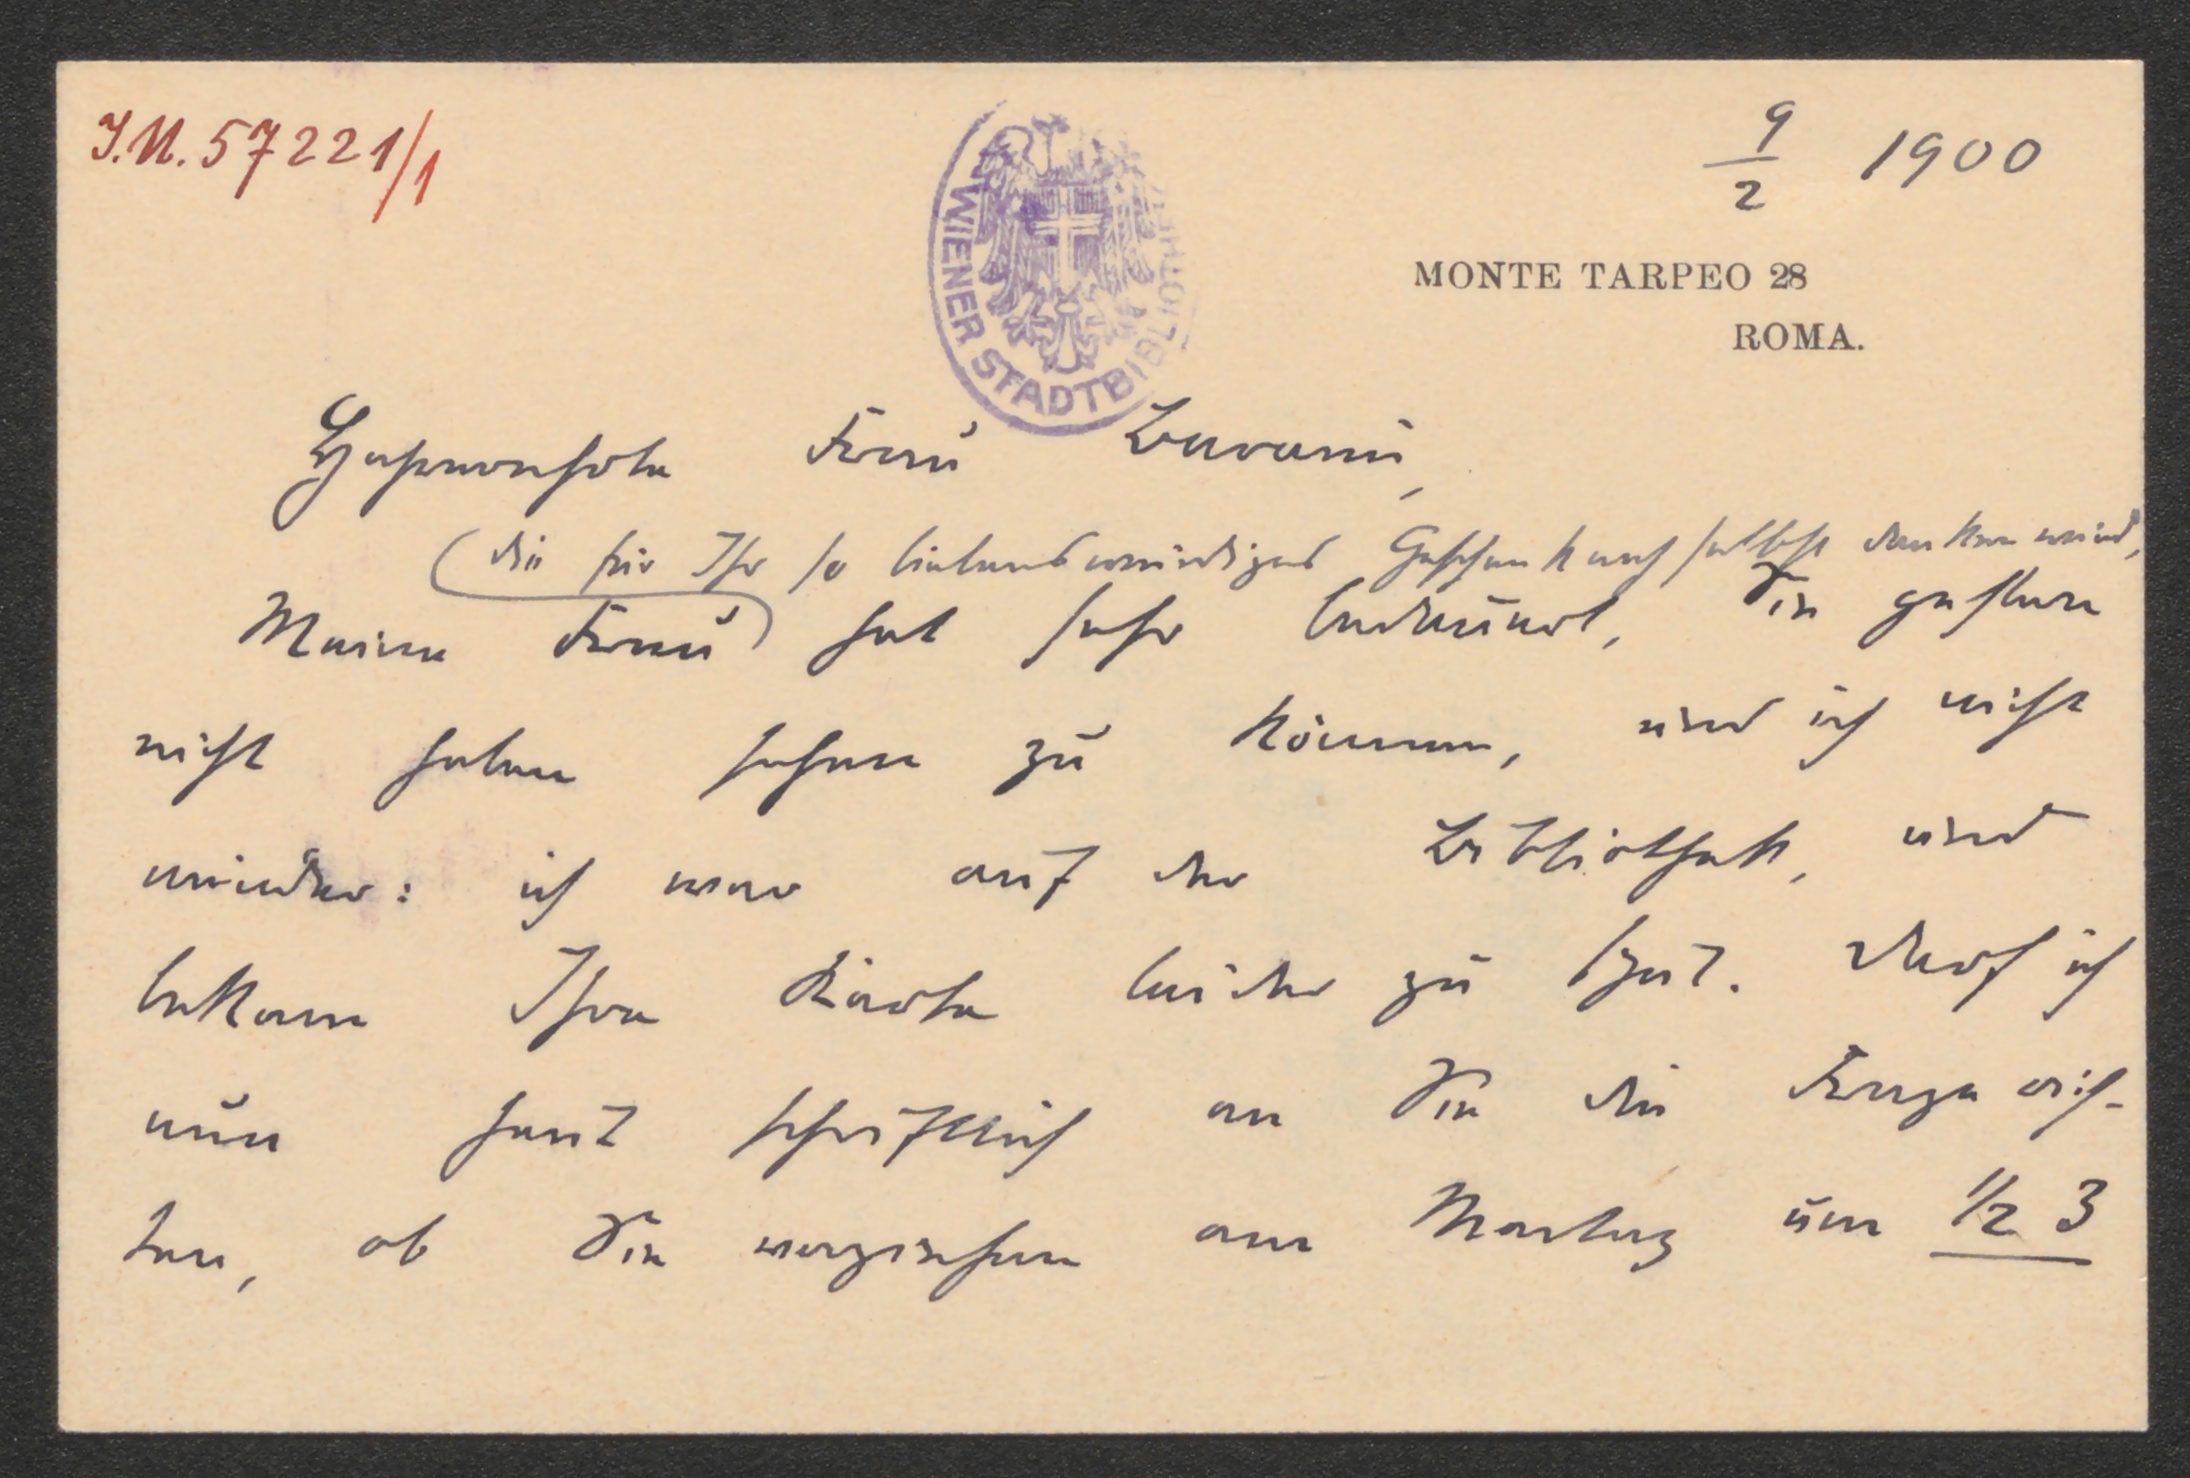 I.N. 57221/1
WIENER STADTBIBLIOTHEK
9/2 1900
MONTE TARPEO 28
ROMA.
Hochverehrte Frau Baronin,
(die für Ihr so liebenswürdiges Geschenk noch selbst danken wird,
Meine Frau) hat sehr bedauert, Sie gestern
nicht haben sehen zu können, und ich nicht
minder: ich war auf der Bibliothek, und
bekam Ihre Karte leider zu spät. Darf ich
nun heut schriftlich an Sie die Frage rich-
ten, ob Sie am Montag um 1/2 3